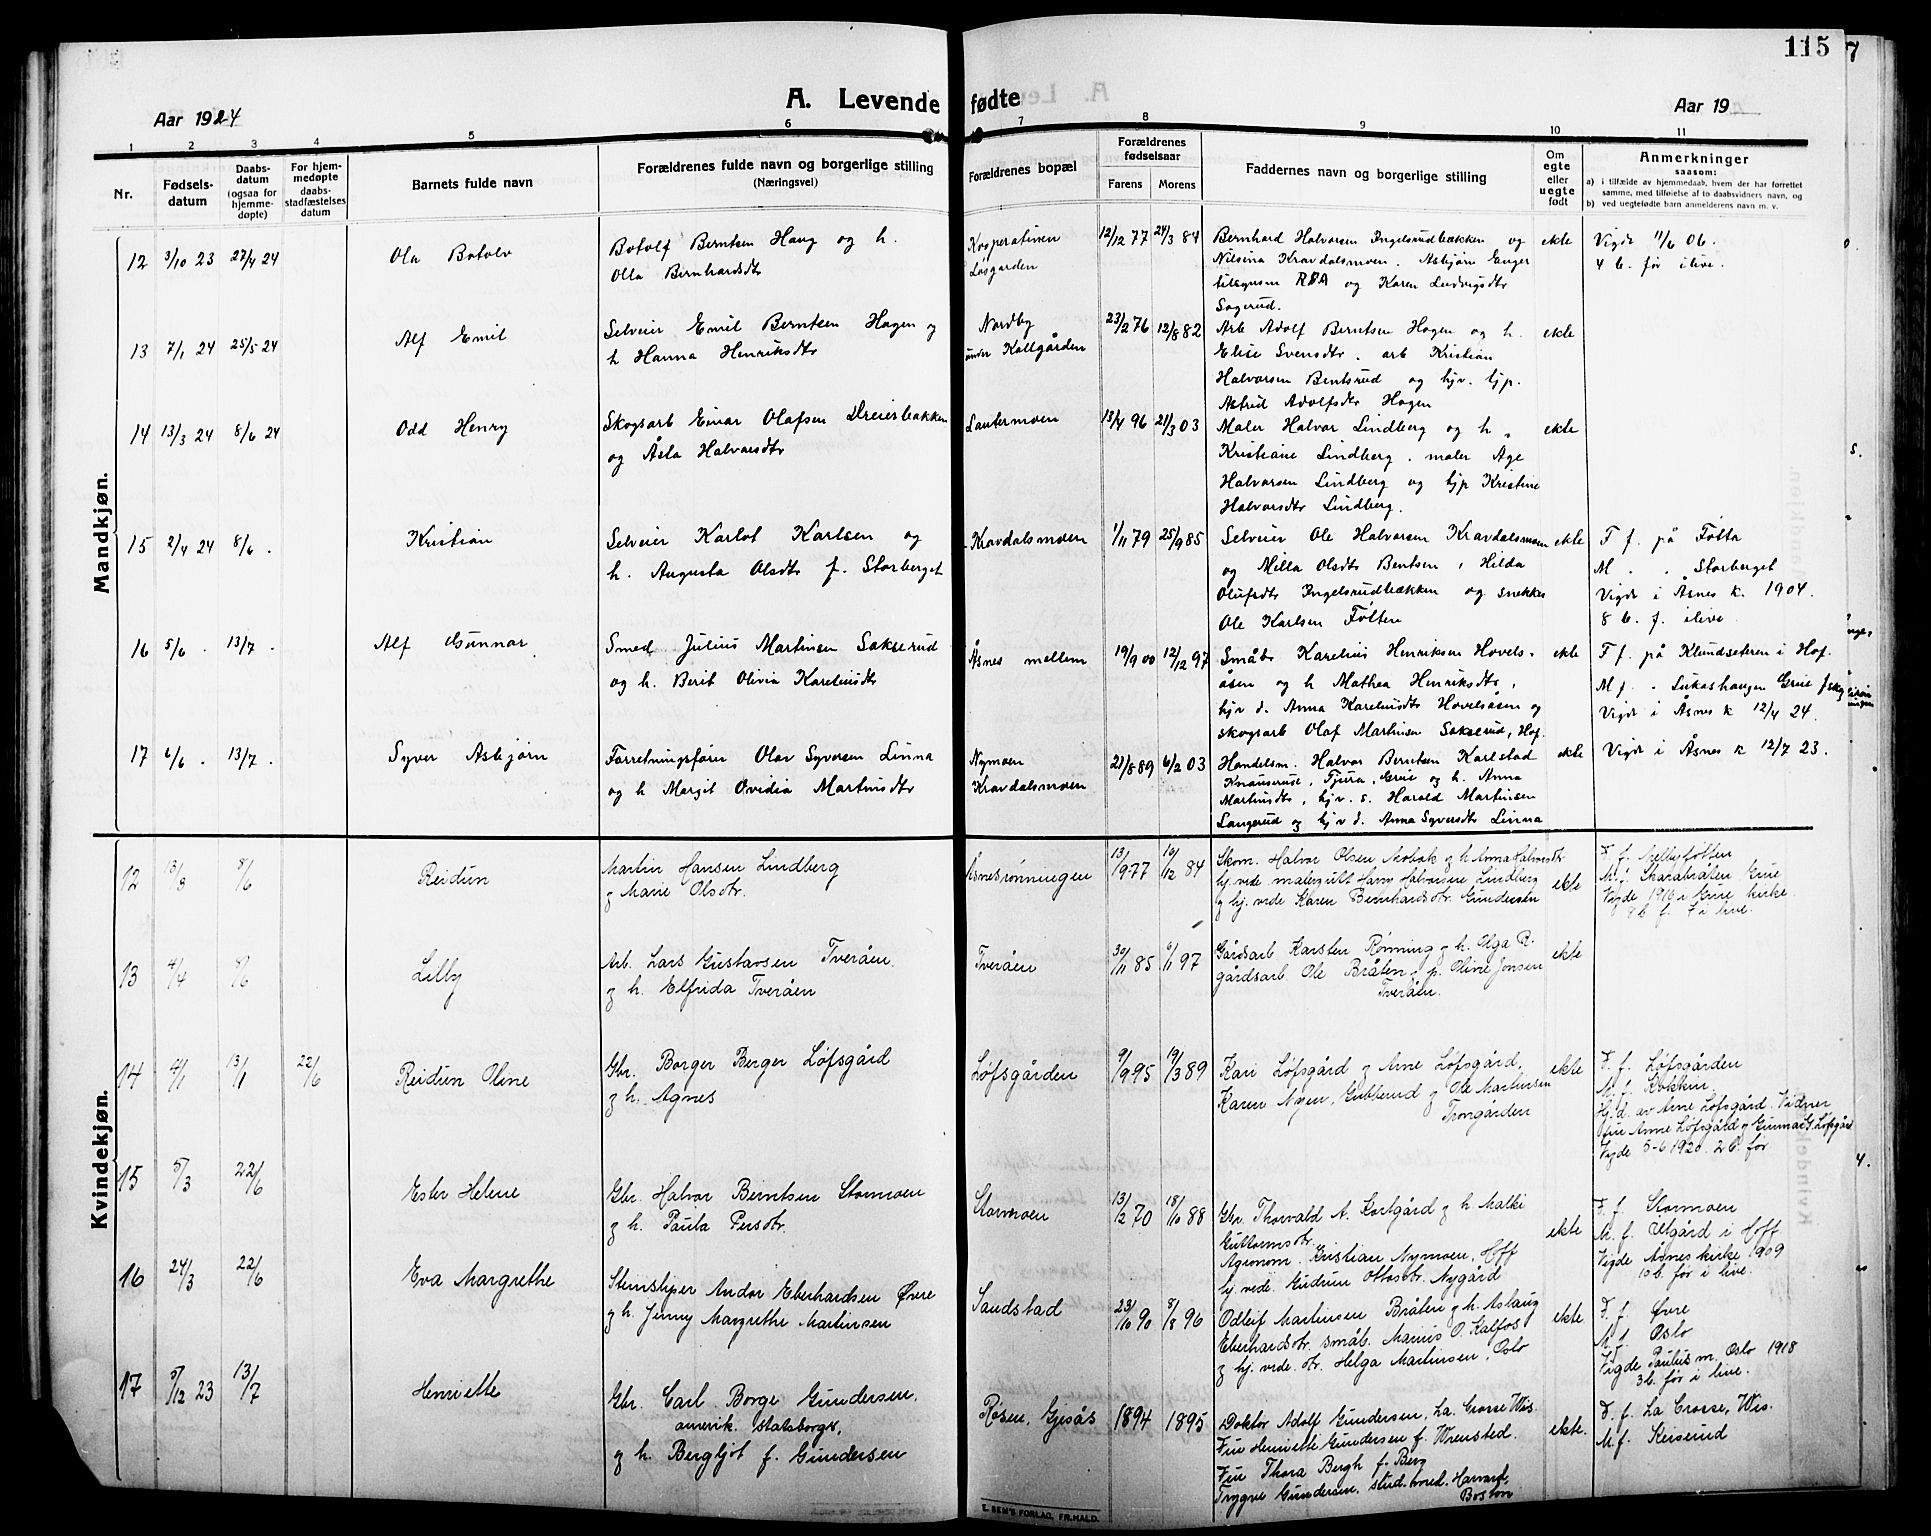 115
7
A. Levende fødte
Aar 1924
Aar 19
1 2 3 4 5 6 7 8 9 10 11
Nr.
Fødsels-
datum
Daabs-
datum
(ogsaa for
hjemme-
døpte)
For hjem-
medøpte
daabs-
stadfæstelses
datum
Barnets fulde navn
Forældrenes fulde navn og borgerlige stilling
(Næringsvei)
Forældrenes bopæl
Forældrenes
fødselsaar
Farens
Morens
Faddernes navn og borgerlige stilling
Om
egte
eller
uegte
født
Anmerkninger
saasom:
a) i tilfælde av hjemmedaab, hvem der har forrettet
samme, med tilføielse af to daabsvidners navn, og
b) ved uegtefødte barn anmelderens navn m. v.
Mandkjøn.
12 3/10 23 27/4 24
Ola Botolv
Botolf Berntsen Haug og h.
Olla Bernhardsdtr
Kooperationen
Løsgarden
12/12 77 24/3 84
Bernhard Halvorsen Ingelsrudbækken og
Nilsina Kravdalsmoen. Asbjørn Enger
og Karen Ludvigsdtr
Sagerud.
ekte
Vigde 11/6 06.
4 b. før ilive.
13 7/1 24 25/5 24
Alf Emil
Selveier Emil Berntsen Hagen og
h Hanna Henriksdtr
Nordby
under Kollgården
23/2 76 12/8 82
Arb Adolf Berntsen Hagen og h.
Elise Svensdtr. arb Kristian
Halvorsen Bentsrud og hjv. hjp.
Astrid Adolfsdtr Hagen
ekte
14 13/3 24 8/6 24
Odd Henry
Skogsarb Einar Olafsen Dreierbakken
og Åsta Halvorsdtr
Lautermoen
13/4 96 21/3 03
Maler Halvor Lindberg og h.
Kristiane Lindberg. maler Age
Halvorsen Lindberg og hjp Kristine
Halvorsdtr Lindberg.
ekte
15 2/4 24 8/6 .
Kristian
Selveier Karlot Karlsen og
h. Augusta Olsdtr f. Storberget
Kravdalsmoen
1/11 79 25/9 85
Selveier Ole Halvorsen Kravdalsmoen
og Milla Olsdtr Bentsen, Hilda
Olufsdtr Ingelsrudbækken og snekker
Ole Karlsen Følten
ekte
F f. på Føtta
M . . Storberget
Vigde i Åsnes k. 1904.
8 b. f. ilive.
16 5/6 . 13/7 .
Alf Gunnar
Smed Julius Martinsen Sakserud
og h. Berit Olivia Kareliusdtr
Åsnes mellem
19/9 00 12/12 97
Småb Karelius Henriksen Hovels-
åsen og h Mathea Henriksdtr,
hjv d. Anna Kareliusdtr Hovelsåsen og
skogsarb Olaf Martinsen Sakserud, Hof
ekte
F f. på Klundseteren i Hof.
M f. . Lukashaugen Grue f skog
Vigde i Åsnes k 12/4 24.
17 6/6 . 13/7 .
Syver Asbjørn
Forretningsfører Olav Syversen Linna
og h Margit Ovidia Martinsdtr
Nymoen
Kravdalsmoen
21/8 89 6/2 03
Handelsm. Halvor Berntsen Karlstad
Knauserud, Tjura, Grue og h. Anna
Martinsdtr, hjv. s. Harald Martinsen
Langerud og hjv d. Anna Syversdtr Linna
ekte
Vigde i Åsnes k 12/7 23.
Kvindekjøn.
12 13/3 8/6
Reidun
Martin Hansen Lindberg
og Marie Olsdtr.
Åsnesrønningen
13/9 77 10/12 84
Skom. Halvor Olsen Mobak og h Anna Halvorsdtr
hj. vede malergutt Harry Halvorsen Lindberg
og hj. vede Karen Bernhardsdtr. Gundersen
ekte
F. f. Melbyføtten
M. f. Skarabråten Grue
Vigde 1916 i Grue kirke.
8 b. f. 7 i live.
13 4/4 8/6
Lilly
Arb. Lars Gustavsen Tveråen.
og h. Elfrida Tveråen
Tveråen
30/11 85 6/11 97
Gårdsarb Karsten Rønning og h. Olga R.
gårdsarb Ole Bråten, p. Oline Jonsen
Tveråen.
ekte
14 4/1 13/1 22/6
Reidun Oline
Gbr. Borger Berger Løfsgård
og h. Agnes
Løfsgården
9/9 95 19/3 89
Kari Løfsgård og Arne Løfsgård,
Karen Nyen, Gubberud og Ole Martinsen
Trongården
ekte
F. f. Løfsgården
M. f. Kokkin.
Hj.d. av Arne Løfsgård. Vidner
fru Anne Løfsgård og Gunnar G. Løfsgård
Vigde 5-6 1920. 2 b. før
15 5/3 22/6
Ester Helene
Gbr. Halvor Berntsen Stormoen
og h. Paula Persdtr.
Stormoen
13/12 70 18/10 88
Gbr. Thorvald A. Kortgård og h. Malki
Guttormsdtr.
Agronom. Kristian Nymoen, Hoff
hj. vede. Gudrun Ottosdtr. Nygård
ekte
F. f. Stormoen
M. f. Utgård i Hoff
Vigde Åsnes kirke 1909
10 b. før i live.
16 24/3 22/6
Eva Margrethe
Stenshiper Andor Eberhardsen Øvre
og h. Jenny Margrethe Martinsen
Sandstad
23/10 90 8/8 96
Odleif Martinsen Bråten og h. Aslaug
Eberhardsdtr. småb. Marius O. Kalfos
og hj. vede. dtr. Helga Martinsen, Oslo
ekte.
F. f. Øvre
M. f. Oslo
Vigde Paulus m. Oslo 1918
3 b. før i live.
17 5/12 23 13/7
Henriette
Gbr. Carl Borge Gundersen,
amerik. statsborger,
og h. Bergljot f. Gundersen
Røsen, Gjesås
1894 1895
Doktor Adolf Gundersen, La. Crosse Wis.
Fru Henriette Gundersen f. Wrensted.
Fru Thora Bergh f. Berg
Trygve Gundersen. stud. med. Harvard,
Boston
ekte.
F. f. La Crosse, Wis.
M. f. Keiserud
E. SEM'S FORLAG, FR.HALD.